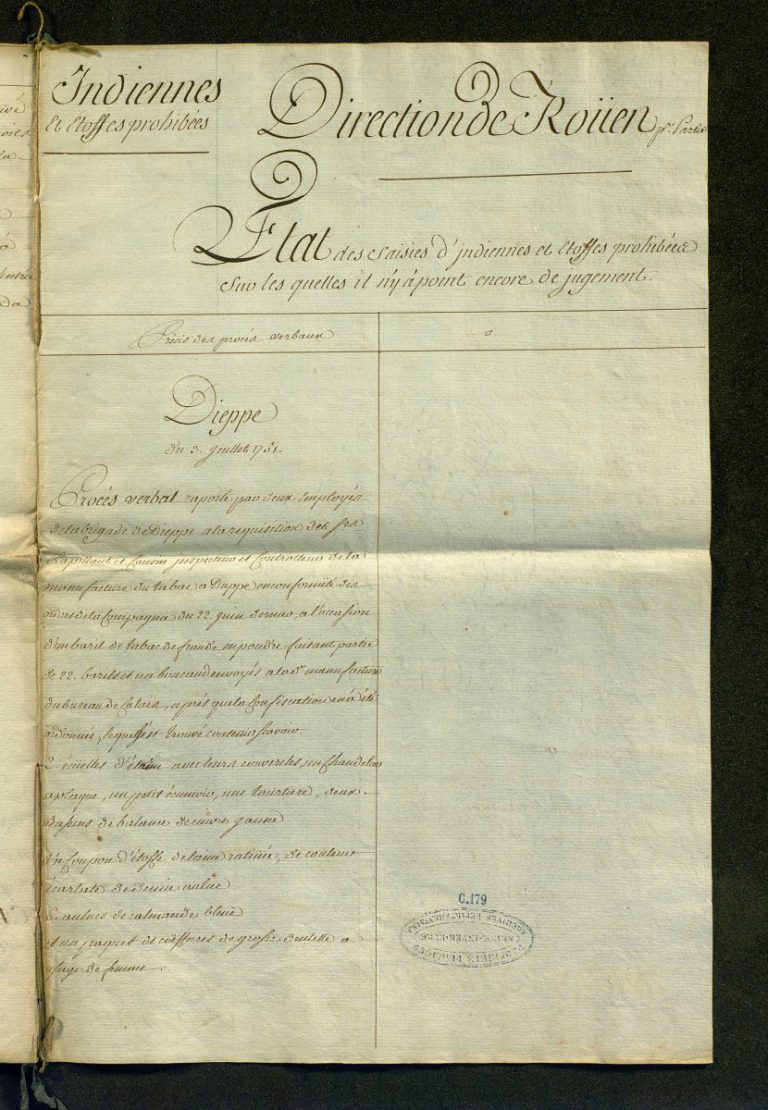 Indiennes
et Etoffes prohibées
Direction de Roüen pr. Partie
Etat des saisies d'jndiennes et Etoffes prohibées
sur les quelles il n'y à point encore de jugement.
Précis des procés verbaux
o
Dieppe
du 3. Juillet 1751.
Procés verbal raporté par deux Employés
de la brigade de Dieppe a la requisition des Srs.
et Cousin jnspecteur et Controlleur de la
manufacture du tabac a Dieppe en conformité des
ordres de la Compagnie du 22. juin dernier, a l'occasion
d'un baril de tabac de fraude en poudre faisant partie
de 22. barils et un boucaud envoyés a la de. manufacture
du bureau de Calais, aprés que la Confiscation en a été
ordonnée, lequel s'est trouvé contenir scavoir.
2 écuelles d'étain avec leurs couvercles, un Chandelier
a plaque, un petit écumoir, une tourtiere, deux
Bassins de balance de cuivre jaune
Un Coupon d'étoffe de laine ratinée, de couleur
écarlate de demie aulne
aulnes de calmande bleuë
et un paquet de coëffures de grosse dentelle a
usage de femme.
C.179
ARCHIVES DÉPARTEMENTALES
SEINE-INFÉRIEURE